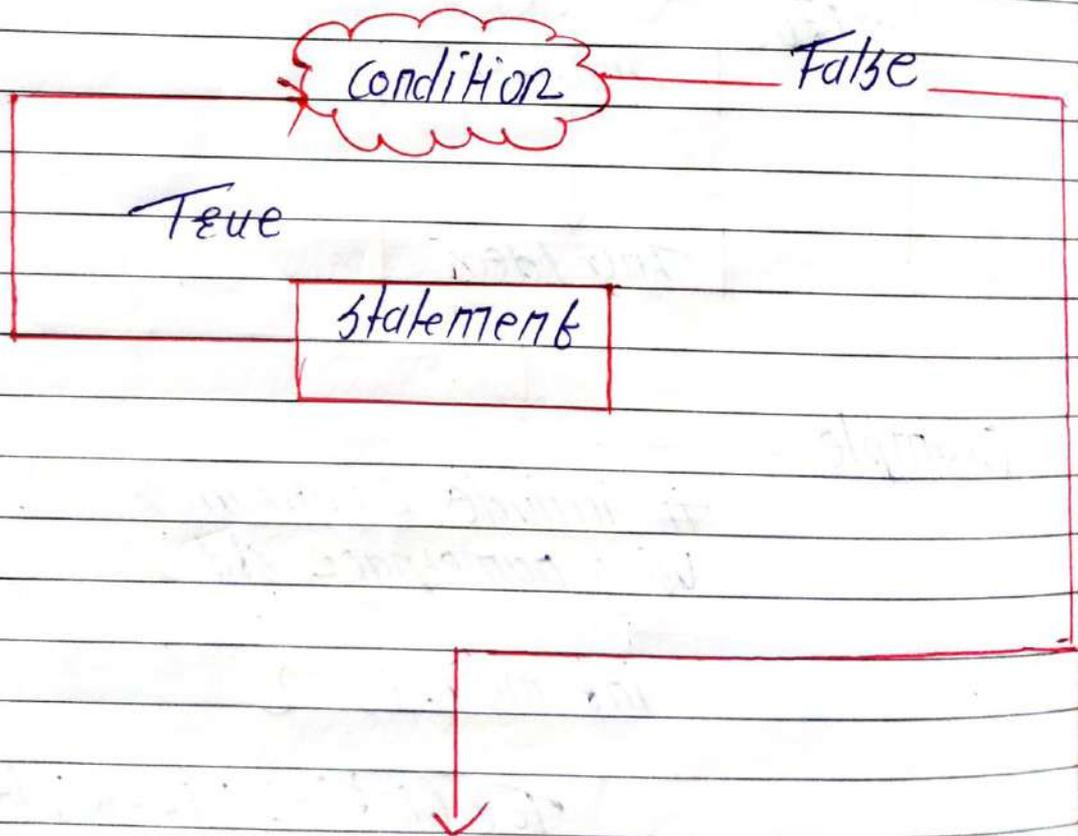 condition
False
True
statement